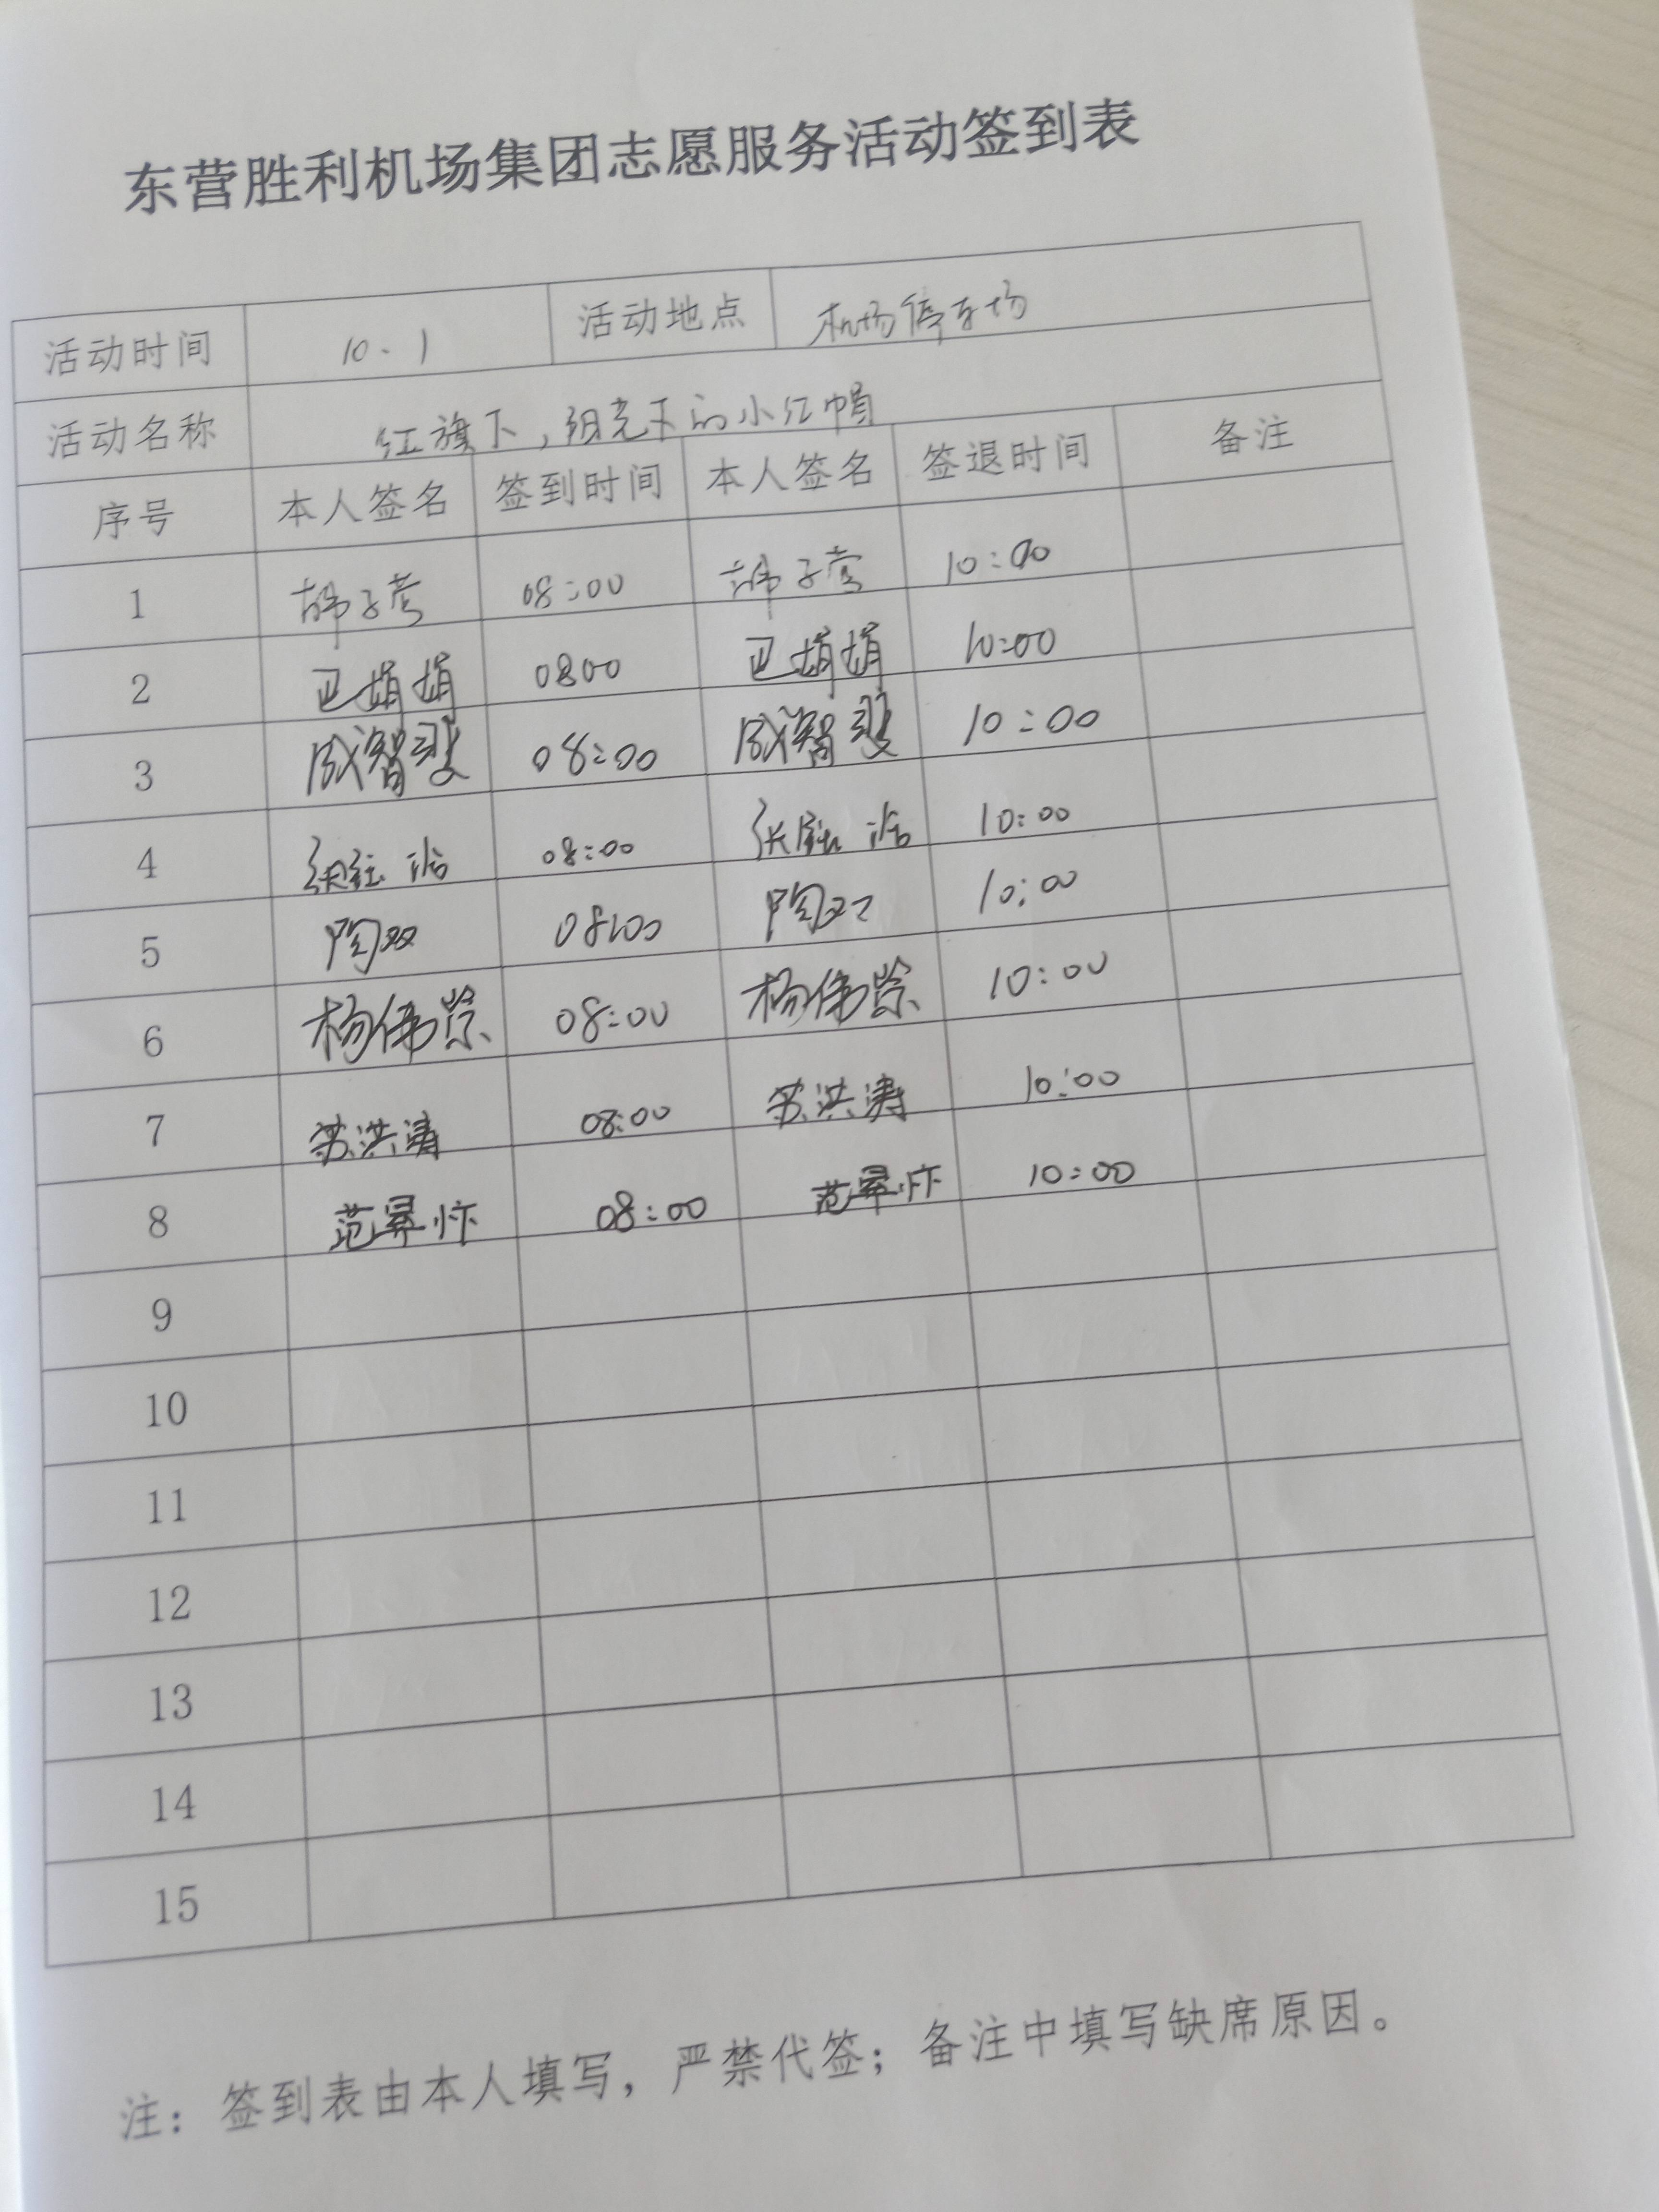 东营胜利机场集团志愿服务活动签到表
活动时间 10.1 活动地点 机场停车场
活动名称 红旗下,阳光下的小红帽
序号 本人签名 签到时间 本人签名 签退时间 备注
1 韩子莹 08:00 韩子莹 10:00
2 卫娟娟 0800 卫娟娟 10:00
3 成智斐 08:00 成智斐 10:00
4 08:00 10:00
5 陶双 08:00 陶双 10:00
6 杨伟崇 08:00 杨伟崇 10:00
7 苏洪涛 08:00 苏洪涛 10:00
8 范 08:00 范 10:00
9
10
11
12
13
14
15
注：签到表由本人填写，严禁代签；备注中填写缺席原因。